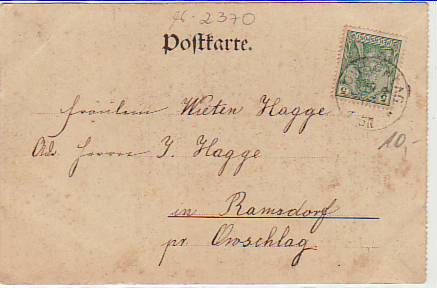 2370
Postkarte.
Fräulein Wieten Hagge
Adr. Herrn J. Hagge
in Ramsdorf
pr Owschlag
10,-
5
5